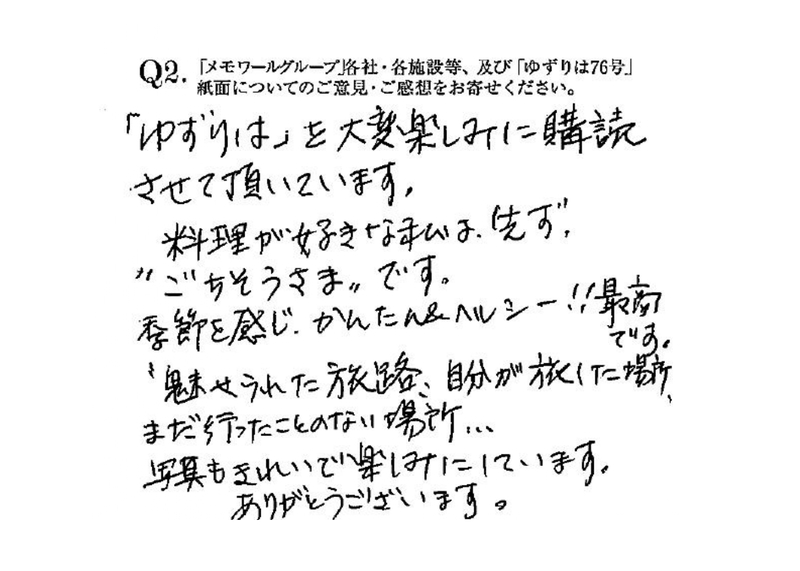 Q2.「メモワールグループ」各社・各施設等、及び「ゆずりは76号」
紙面についてのご意見・ご感想をお寄せください。
「ゆずりは」を大変楽しみに購読
させて頂いています。
料理が好きな私は、先ず、
〝ごちそうさま〟です。
季節を感じ、かんたん&ヘルシー!!最高
です。
〝魅せられた旅路、自分が旅した場所、
まだ行ったことのない場所...
写真もきれいで楽しみにしています。
ありがとうございます。